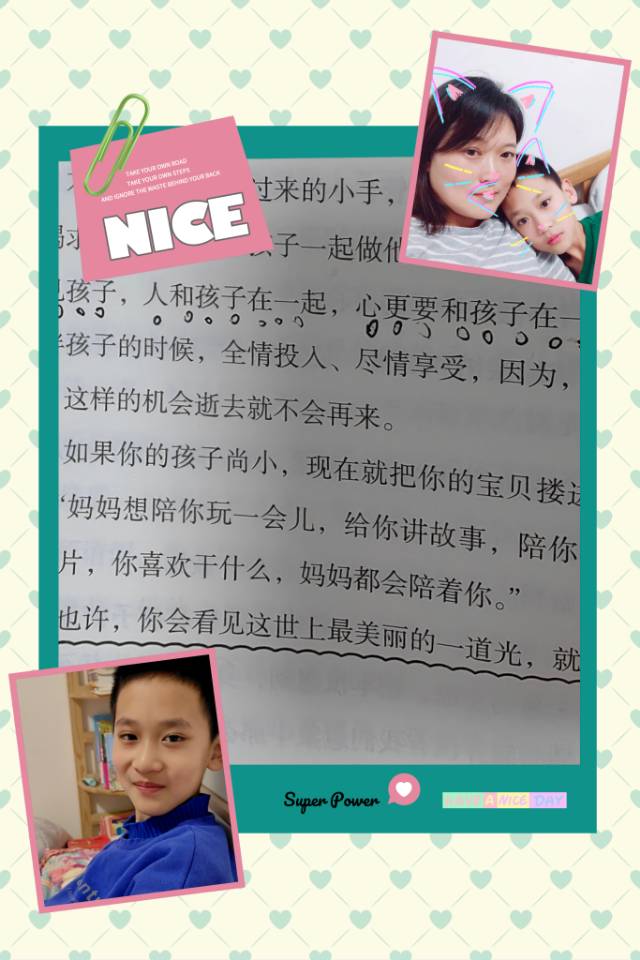 TAKE YOUR OWN ROAD
TAKE YOUR OWN STEPS
AND IGNORE THE WASTE BEHIND YOUR BACK
NICE
过来的小手，
子一起做他
孩子，人和孩子在一起，心更要和孩子在一
孩子的时候，全情投入、尽情享受，因为，
这样的机会逝去就不会再来。
如果你的孩子尚小，现在就把你的宝贝搂
“妈妈想陪你玩一会儿，给你讲故事，陪你
片，你喜欢干什么，妈妈都会陪着你。”
也许，你会看见这世上最美丽的一道光，就
Super Power
HAVE A NICE DAY